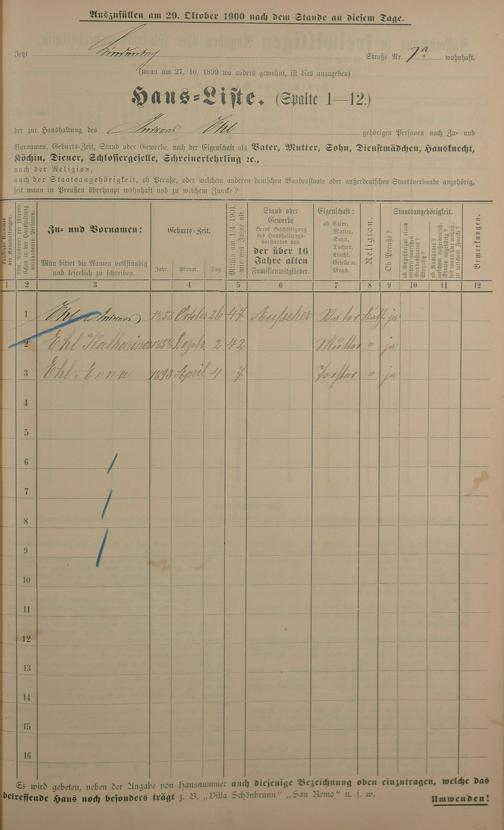 Auszufüllen am 29. Oktober 1900 nach dem Stande an diesem Tage.
Jetzt Straße Nr. 7a wohnhaft.
(wenn am 27. 10. 1899 wo anders gewohnt, ist dies anzugeben)
Haus-Liste. (Spalte 1—12.)
der zur Haushaltung des Andreas Ehl gehörigen Personen nach Zu- und
Vornamen, Geburts-Zeit, Stand oder Gewerbe, nach der Eigenschaft als Vater, Mutter, Sohn, Dienstmädchen, Hausknecht,
Köchin, Diener, Schlossergeselle, Schreinerlehrling ec.,
nach der Religion,
nach der Staatsangehörigkeit, ob Preuße, oder welchem anderen deutschen Bundesstaate oder außerdeutschen Staatsverbande angehörig,
seit wann in Preußen überhaupt wohnhaft und zu welchem Zwecke?
Zu- und Vornamen:
Man bittet die Namen vollständig
und leserlich zu schreiben.
Geburts-Zeit.
Jahr. Monat. Tag
Mithin am 1./4. 1901
wie viel Jahre alt.
Stand oder
Gewerbe
der über 16
Jahre alten
Familienmitglieder.
Eigenschaft:
ob Vater,
Mutter,
Sohn,
Tochter,
Knecht,
Geselle u.
Magd.
Religion.
Staatsangehörigkeit.
Ob Preuße?
Bemerkungen.
1 2 3 4 5 6 7 8 9 10 11 12
1 Ehl Andreas 1853 26 47 Aufseher Vater Kath. ja
2 Ehl Katharina 1858 2 42 Mutter " ja
3 Ehl Anna 1893 April 4 7 " ja
4
5
6
7
8
9
10
11
12
13
14
15
16
Es wird gebeten, neben der Angabe von Hausnummer auch diejenige Bezeichnung oben einzutragen, welche das
betreffende Haus noch besonders trägt z. B. „Villa Schönbrunn" „San Remo" u. s. w.
Umwenden!